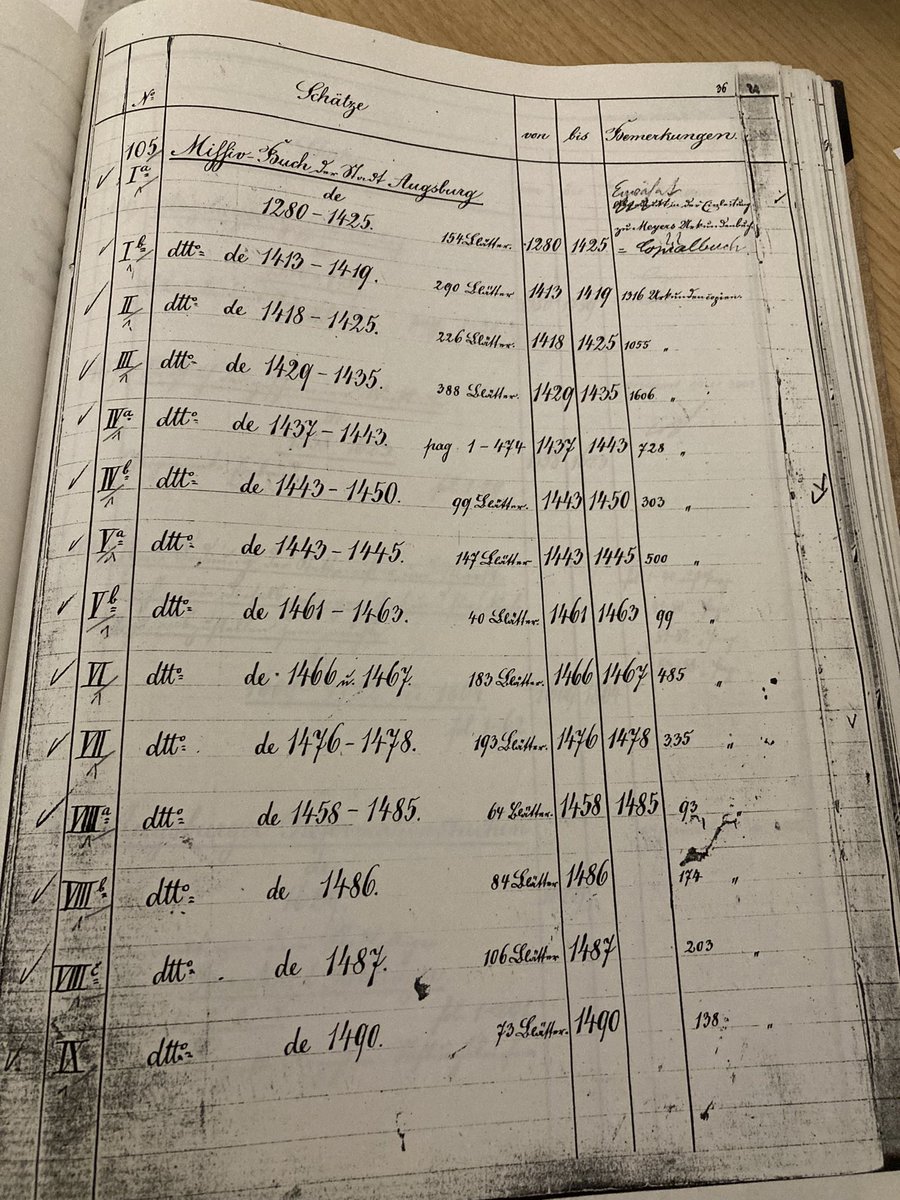 36
No. Schätze von bis Bemerkungen.
105 Missiv-Buch der Stadt Augsburg
Ia de
1280–1425. 154 Blätter. 1280 1425
Erwähnt
in der Einleitung
zu Meyers Urkundenbuch
= Copialbuch.
Ib dtto de 1413–1419. 290 Blätter 1413 1419 1316 Urkundencopien.
II dtto de 1418–1425. 226 Blätter. 1418 1425 1055 "
III dtto de 1429–1435. 388 Blätter. 1429 1435 1606 "
IVa dtto de 1437–1443. pag 1–474 1437 1443 728 "
IVb dtto de 1443–1450. 99 Blätter. 1443 1450 303 "
Va dtto de 1443–1445. 147 Blätter 1443 1445 500 "
Vb dtto de 1461–1463. 40 Blätter. 1461 1463 99 "
VI dtto de 1466 u. 1467. 183 Blätter. 1466 1467 485 "
VII dtto de 1476–1478. 193 Blätter. 1476 1478 335 "
VIIIa dtto de 1458–1485. 64 Blätter. 1458 1485 93 "
VIIIb dtto de 1486. 84 Blätter 1486 174 "
VIIIc dtto de 1487. 106 Blätter 1487 203 "
IX dtto de 1490. 73 Blätter. 1490 138 "